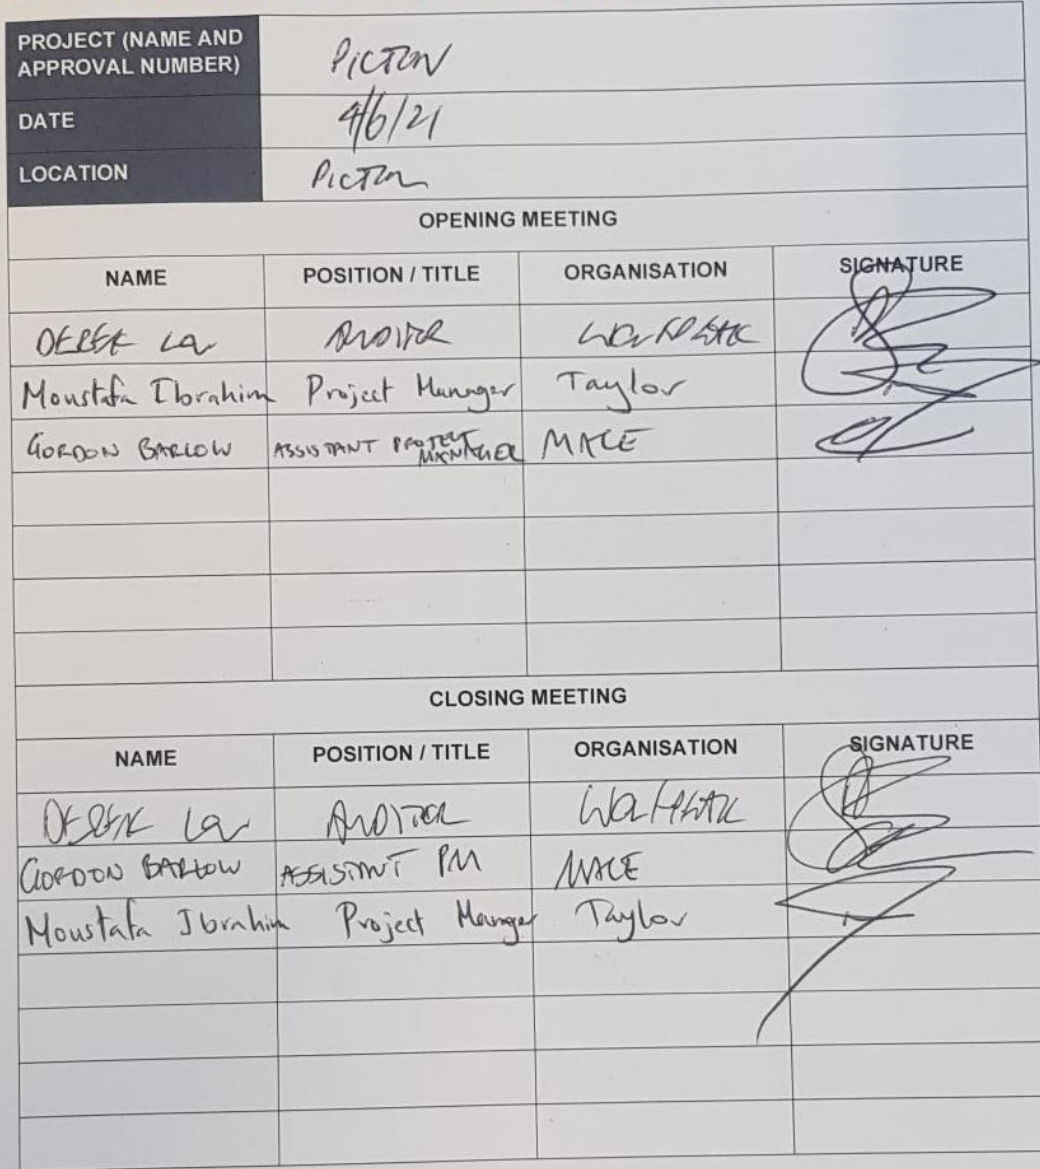 PROJECT (NAME AND
APPROVAL NUMBER)
PICTON
DATE
4/6/21
LOCATION
PICTON
OPENING MEETING
NAME POSITION / TITLE ORGANISATION SIGNATURE
DEREK LOW AUDITOR WOLFPEAK
Moustafa Ibrahim Project Manager Taylor
GORDON BARLOW ASSISTANT PROJECT MANAGER MACE
CLOSING MEETING
NAME POSITION / TITLE ORGANISATION SIGNATURE
DEREK LOW AUDITOR WOLFPEAK
GORDON BARLOW ASSISTANT PM MACE
Moustafa Ibrahim Project Manager Taylor